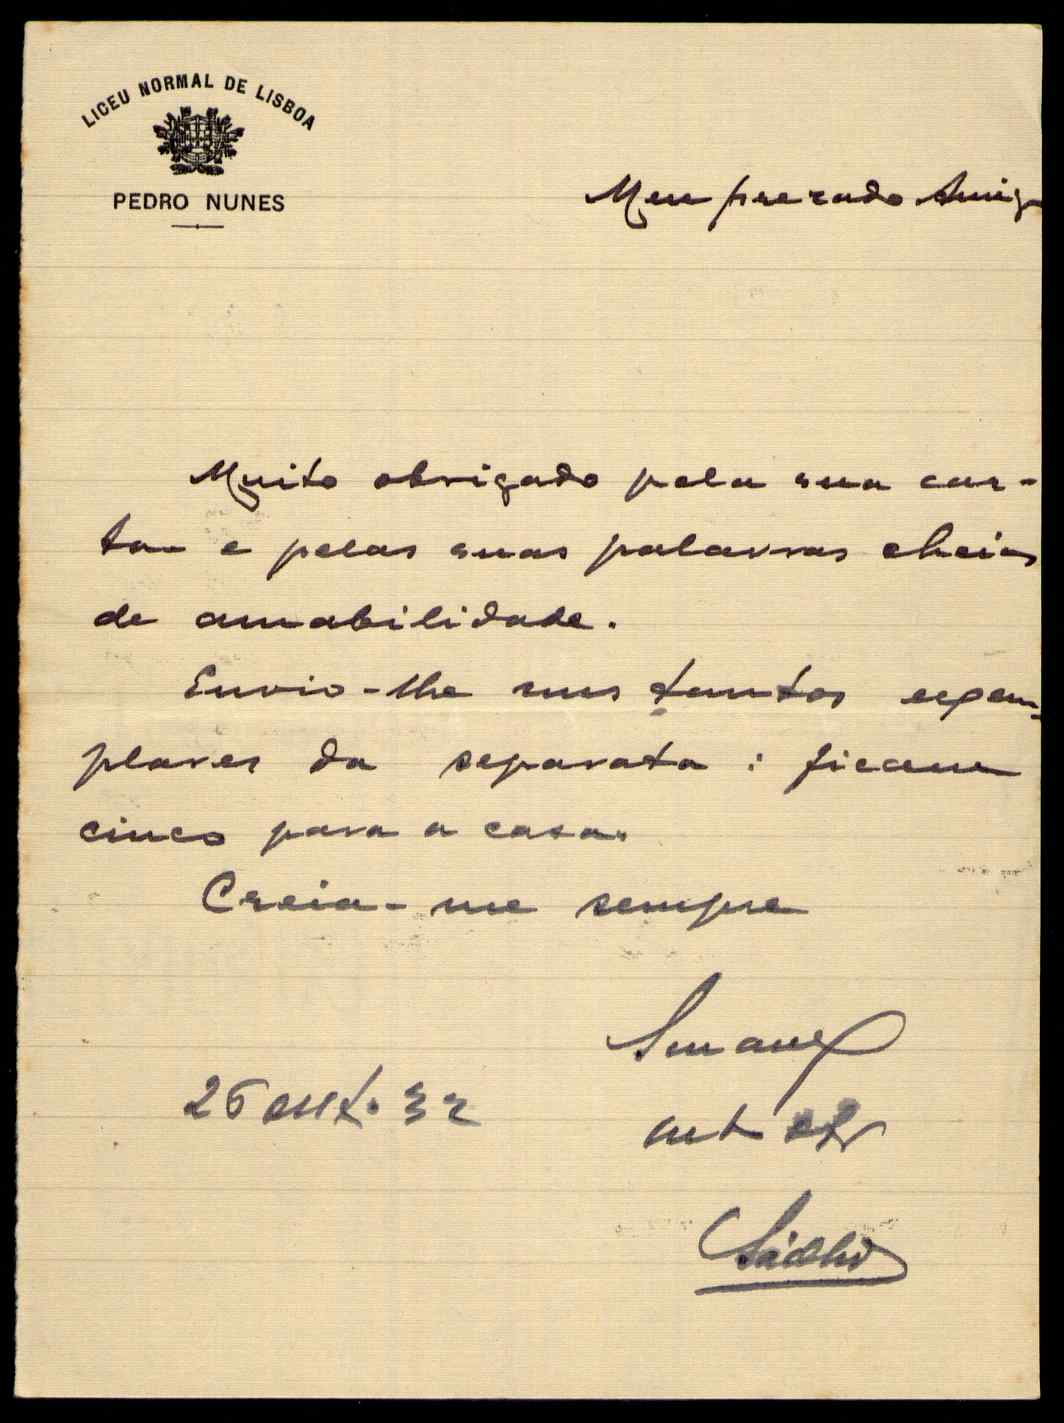 LICEU NORMAL DE LISBOA
PEDRO NUNES
Meu prezado Amigo
Muito obrigado pela sua car-
ta e pelas suas palavras cheias
de amabilidade.
Envio-lhe uns tantos exem-
plares da separata: ficam
cinco para a casa.
Creia-me sempre
26 out. 32